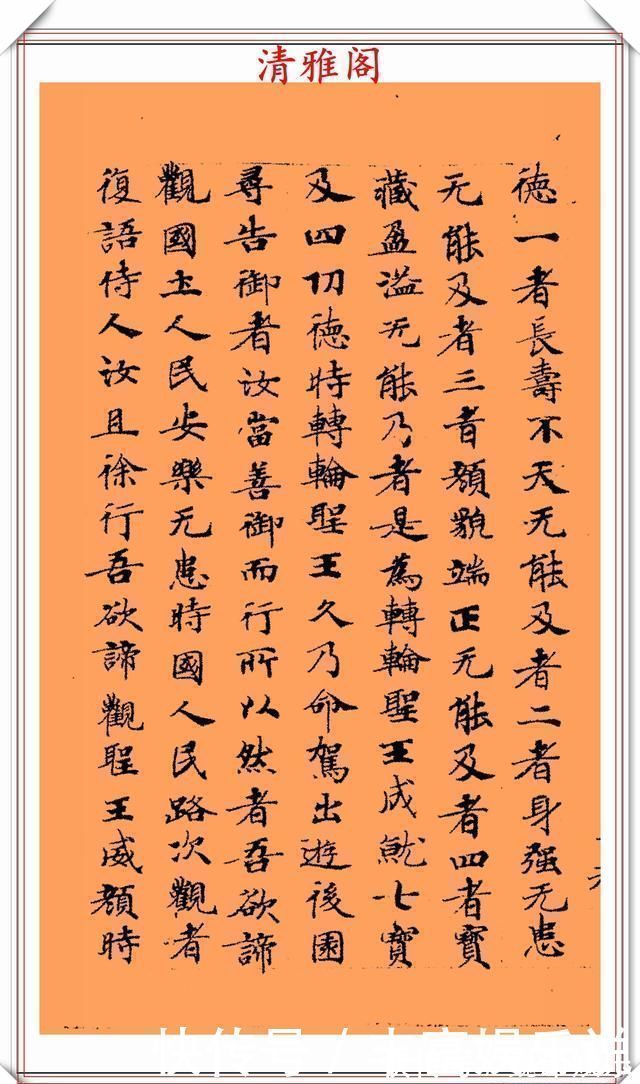 清雅阁
德一者長壽不夭无能及者二者身强无患
无能及者三者顏貌端正无能及者四者寶
藏盈溢无能乃者是為轉輪聖王成就七寶
及四功德時轉輪聖王久乃命駕出遊後園
尋告御者汝當善御而行所以然者吾欲諦
觀國土人民安樂无患時國人民路次觀者
復語侍人汝且徐行吾欲諦觀聖王威顏時